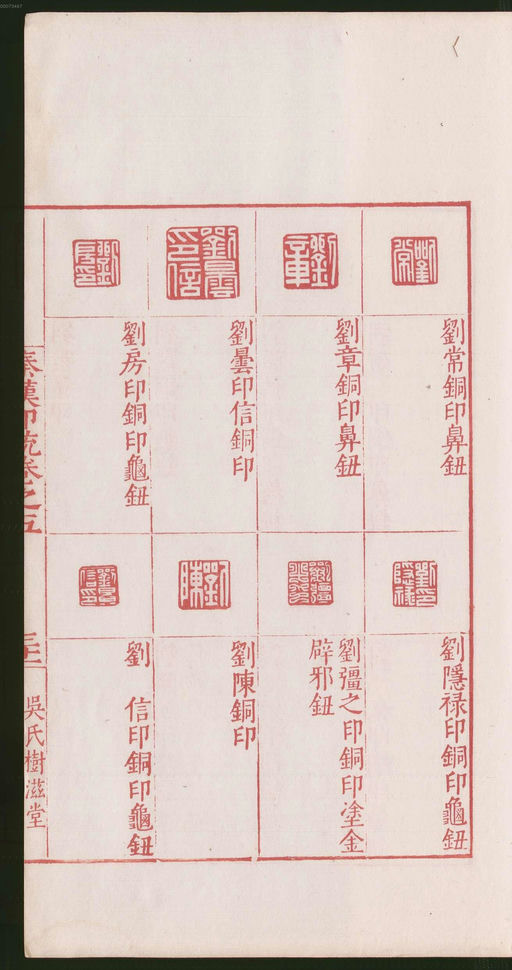 劉常銅印鼻鈕
劉章銅印鼻鈕
劉曇印信銅印
劉房印銅印龜鈕
劉隱祿印銅印龜鈕
劉彊之印銅印塗金
辟邪鈕
劉陳銅印
劉 信印銅印龜鈕
秦漢印統卷之五
吳氏樹滋堂
00073467